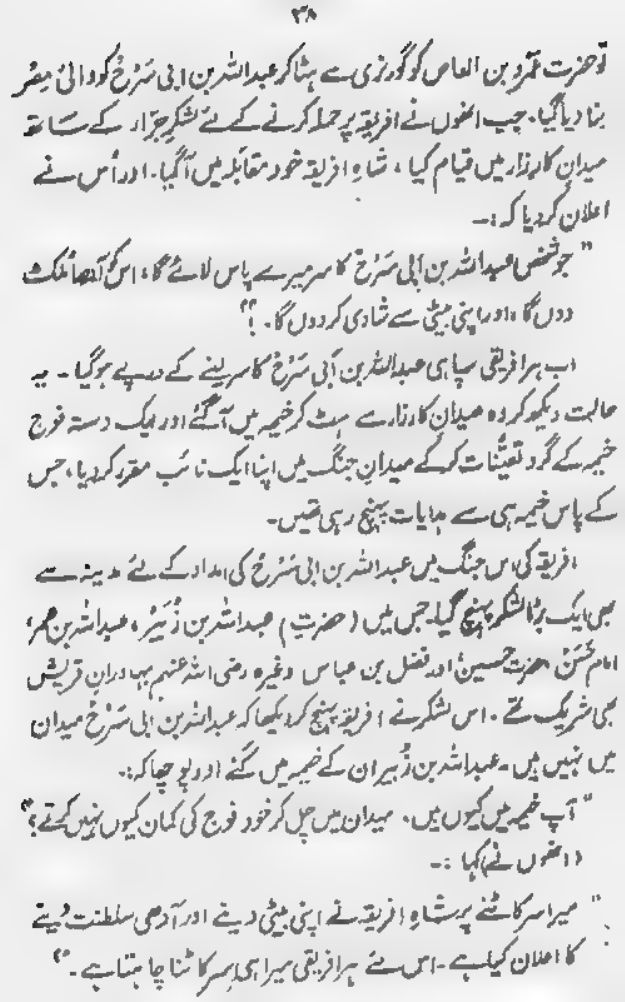 ۳۸
تو حضرت عمرو بن العاص کو گورنری سے ہٹا کر عبداللہ بن ابی سَرْحؓ کو والئ مِصْر
بنا دیا گیا۔ جب انھوں نے افریقہ پر حملہ کرنے کے لئے لشکرِ جرّار کے ساتھ
میدانِ کارزار میں قیام کیا، شاہِ افریقہ خود مقابلہ میں آگیا۔ اور اُس نے
اعلان کر دیا کہ :۔
"جو شخص عبداللہ بن اَبی سَرْح کا سر میرے پاس لائے گا، اس کو آدھا مُلک
دوں گا، اور اپنی بیٹی سے شادی کر دوں گا۔ !"
اب ہر افریقی سپاہی عبداللہ بن اَبی سَرْح کا سر لینے کے درپے ہوگیا۔ یہ
حالت دیکھ کر وہ میدانِ کارزار سے ہٹ کر خیمہ میں آگئے اور ایک دستہ فوج
خیمہ کے گرد تعینّات کر کے میدانِ جنگ میں اپنا ایک نائب مقرر کر دیا، جس
کے پاس خیمہ ہی سے ہدایات پہنچ رہی تھیں۔
افریقہ کی اس جنگ میں عبداللہ بن ابی سَرْح کی امداد کے لئے مدینہ سے
بھی ایک بڑا لشکر پہنچ گیا۔ جس میں (حضرت) عبداللہ بن زُبَیْر، عبداللہ بن عمر،
امام حَسَنؓ، حضرت حسینؓ اور فضل بن عباس وغیرہ رضی اللہ عنہم بہادرانِ قریش
بھی شریک تھے۔ اس لشکر نے افریقہ پہنچ کر دیکھا کہ عبداللہ بن اَبی سَرْح میدان
میں نہیں ہیں۔ عبداللہ بن زُبیر ان کے خیمہ میں گئے اور پوچھا کہ :۔
"آپ خیمہ میں کیوں ہیں۔ میدان میں چل کر خود فوج کی کمان کیوں نہیں کرتے؟"
(انھوں نے) کہا :۔
"میرا سر کاٹنے پر شاہِ افریقہ نے اپنی بیٹی دینے اور آدھی سلطنت دینے
کا اعلان کیا ہے۔ اس لئے ہر افریقی میرا ہی سر کاٹنا چاہتا ہے۔"